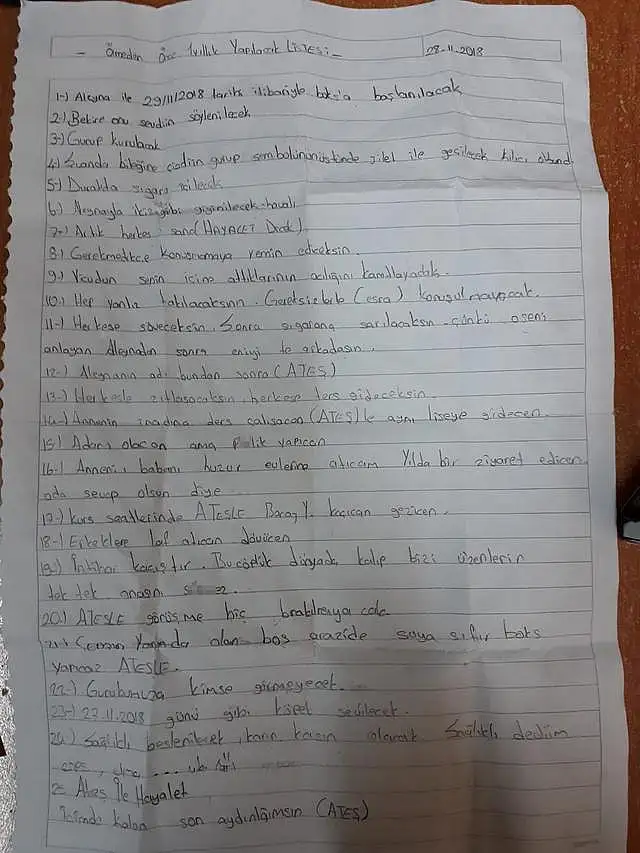 - Ölmeden Önce 1 yıllık Yapılacak Listesi - 28.11.2018
1-) Aleyna ile 29/11/2018 tarihi itibariyle boks'a başlanılacak
2-) Bekire onu sevdiin söylenilecek
3-) Gurup kurulacak
4-) Sonanda bileğine cizdiin gurup sembolünün üstünde jilet ile geçilecek
5-) Duvalda sigara içilecek
6-) Aleynayla ikiz gibi giyinilecek-havalı
7-) Artık herkes sana (HAYALET Dicek)
8-) Gerekmedikçe konuşmamaya yemin ediceksin.
9-) Vucudun senin içine attıklarının acılığını kanıtlayacak.
10-) Hep yanlız takılacaksın. Gereksizbile (esra) konuşulmayacak.
11-) Herkese söveceksin. Sonra sigarana sarılacaksın. çünkü o seni
anlayan Aleynadan sonra eniyi te arkadaşın.
12-) Aleynanın adı bundan sonra (ATEŞ)
13-) Herkesle zıtlaşacaksın herkese ters gideceksin.
14-) Annenin inadına ders çalışacan (ATEŞ) le aynı liseye gidecen.
15) Adam olacan ama p lik yapıcan
16-) Anneni, babanı huzur evlerine atıcam Yılda bir ziyaret edicen
oda sevap olsun diye
17-) Kurs saatlerinde ATEŞLE Y. kaçıcan gezicen.
18-) Erkeklere laf atıcan dövücen
19-) İntihar kaçıştır. Bu dünyada kalıp bizi üzenlerin
tek tek anasını
20-) ATEŞLE görüşme hiç bırakılmıyacak
21-) Caminin Yanında olan boş arazide suya sıfır boks
yapıcaz ATEŞLE.
22-) Gurubumuza kimse girmeyecek.
23-) 22.11.2018 günü gibi küpet sevilecek.
24-) Sağlıklı beslenilecek, karın kasın olamak Sağlıklı dediim
... vb
= Ateş İle Hayalet
İçimde kalan son aydınlığımsın (ATEŞ)